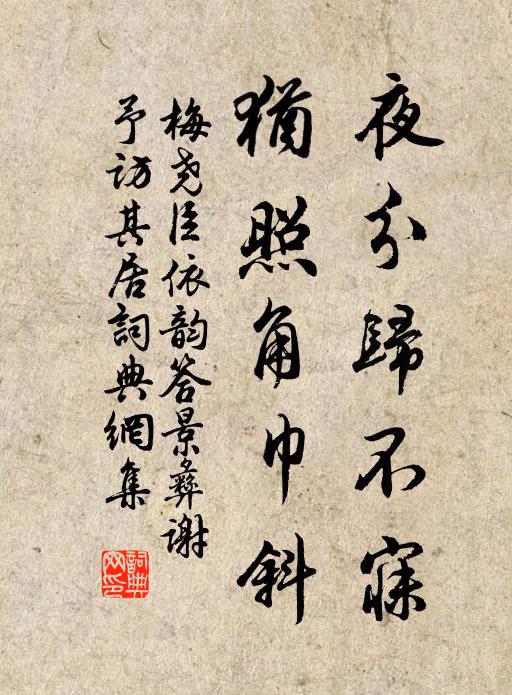 夜分歸不寐
猶照角巾斜
梅尧臣依韵答景彝謝
予訪其居詞典網集
詞典网印